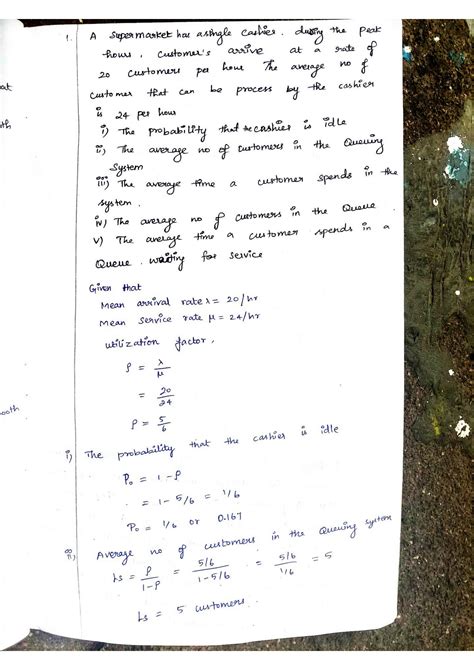 1. A Supermarket has a single Cashier. during the peak
hours, Customer's arrive at a rate of
20 customers per hour The average no of
Customer that can be process by the cashier
is 24 per hour
i) The probability that the cashier is idle
ii) The average no of customers in the Queuing
System
iii) The average time a customer spends in the
system.
iv) The average no of customers in the Queue
v) The average time a customer spends in a
Queue. waiting for service
Given that
Mean arrival rate λ = 20/hr
Mean service rate μ = 24/hr
utilization factor,
ρ = λ/μ
= 20/24
ρ = 5/6
i) The probability that the cashier is idle
P₀ = 1 - ρ
= 1 - 5/6 = 1/6
P₀ = 1/6 or 0.167
ii) Average no of customers in the Queuing system
Ls = ρ/1-ρ = 5/6/1-5/6 = 5/6/1/6 = 5
Ls = 5 customers.